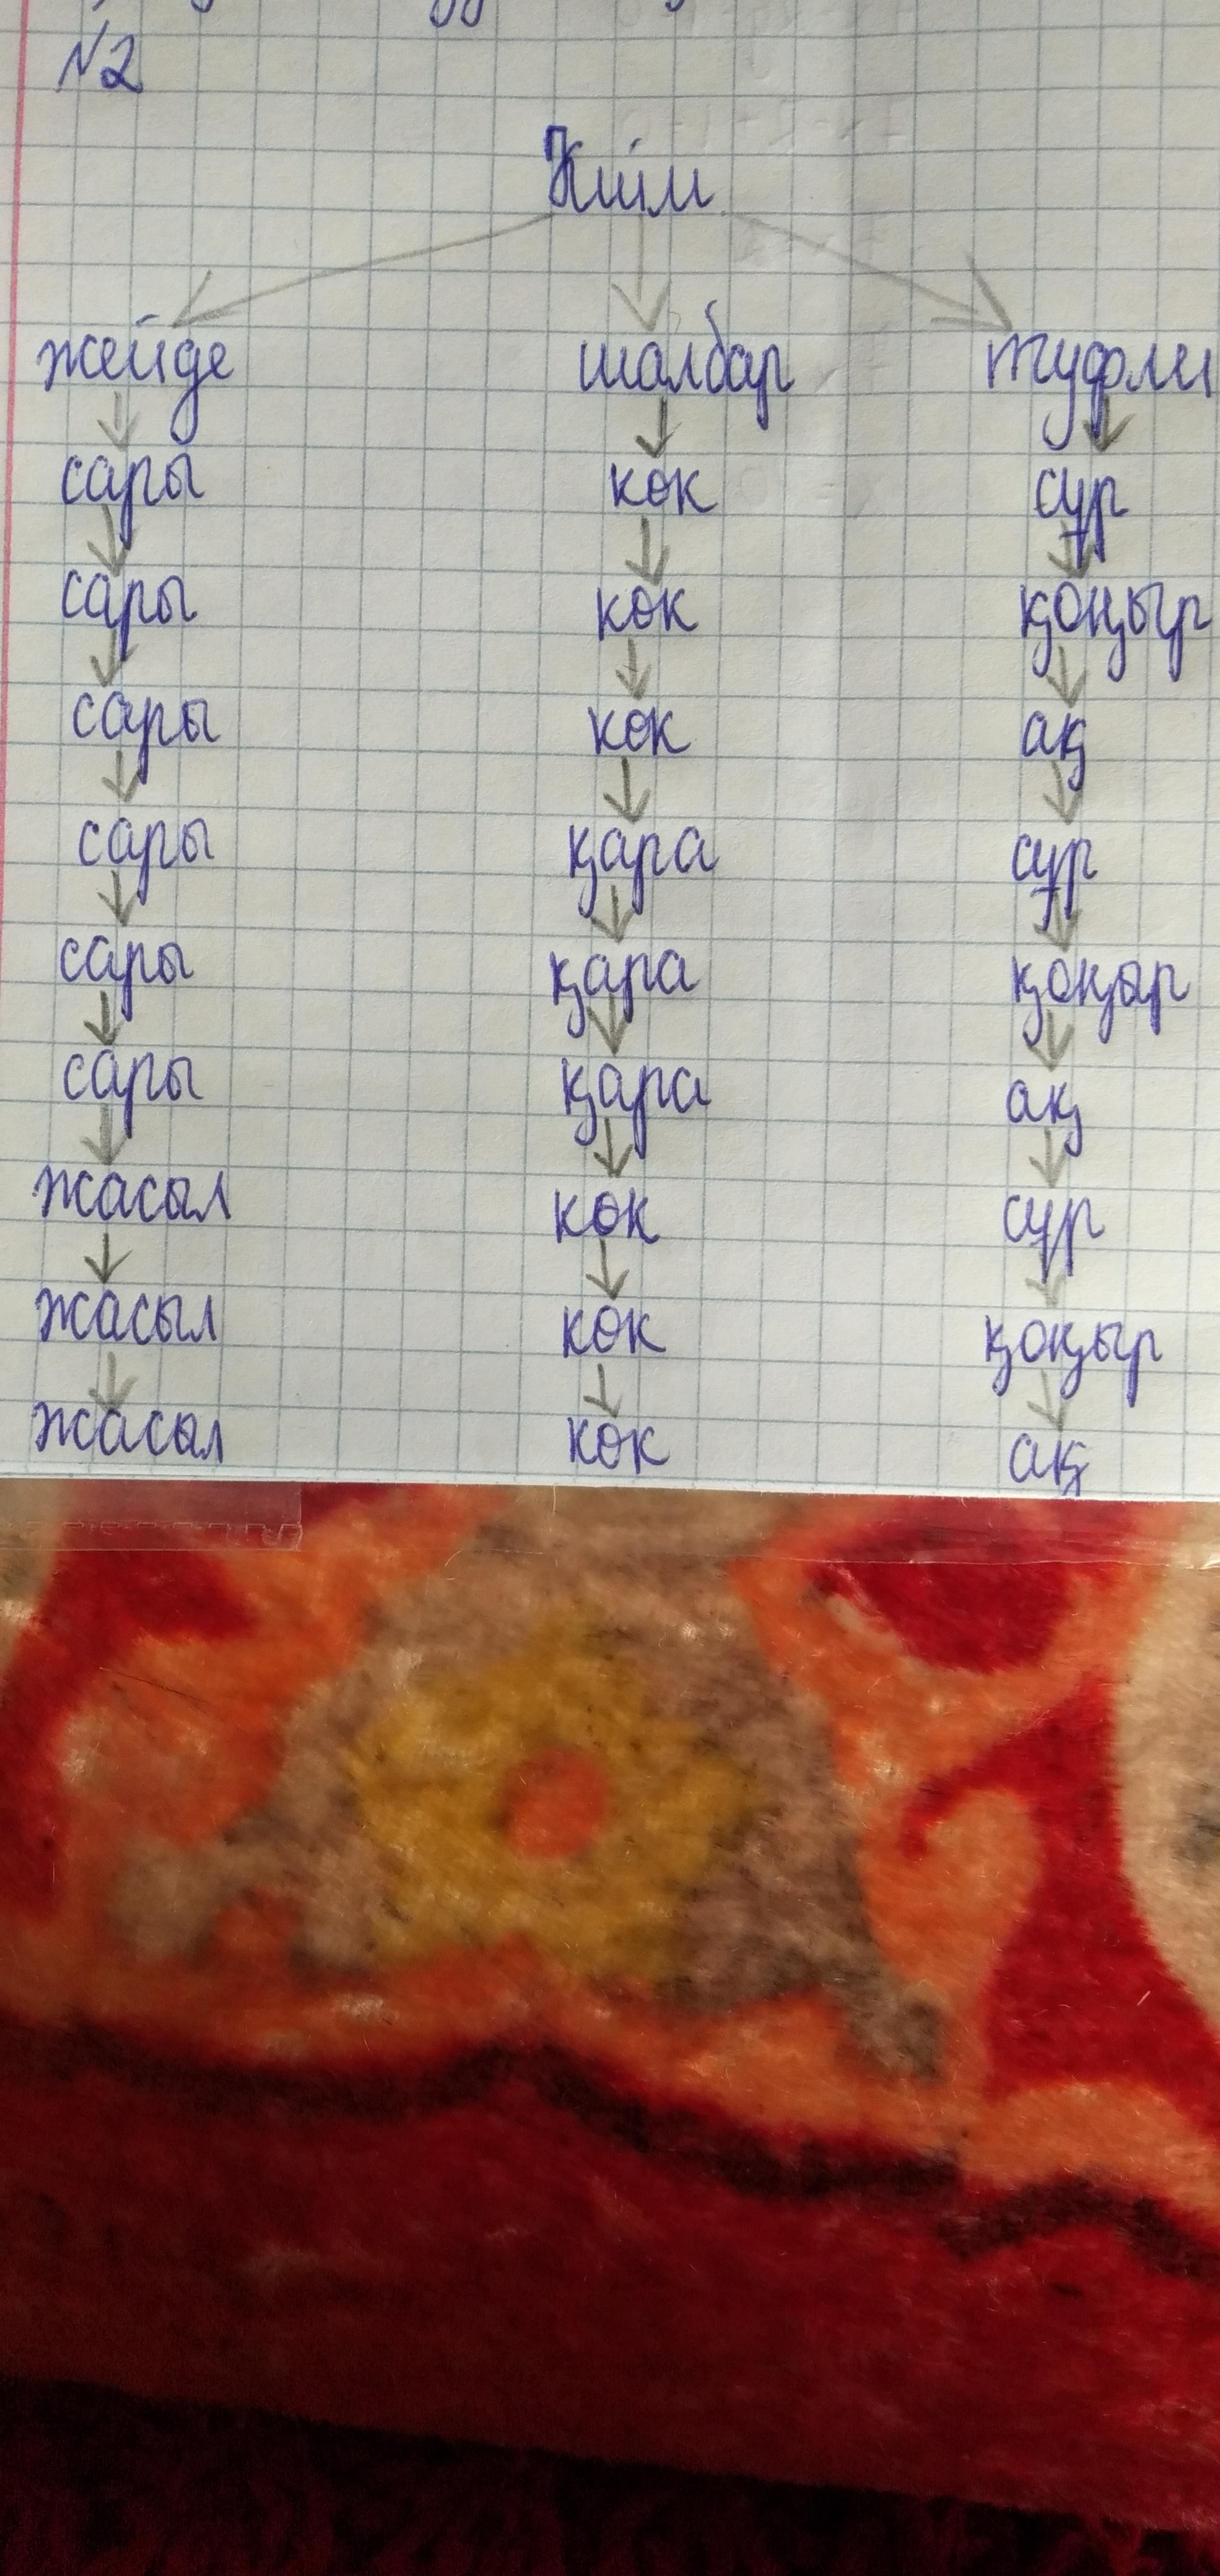 №2
Киім
жейде шалбар туфли
сары көк сұр
сары көк қоңыр
сары көк ақ
сары қара сұр
сары қара қоңыр
сары қара ақ
жасыл көк сұр
жасыл көк қоңыр
жасыл көк ақ